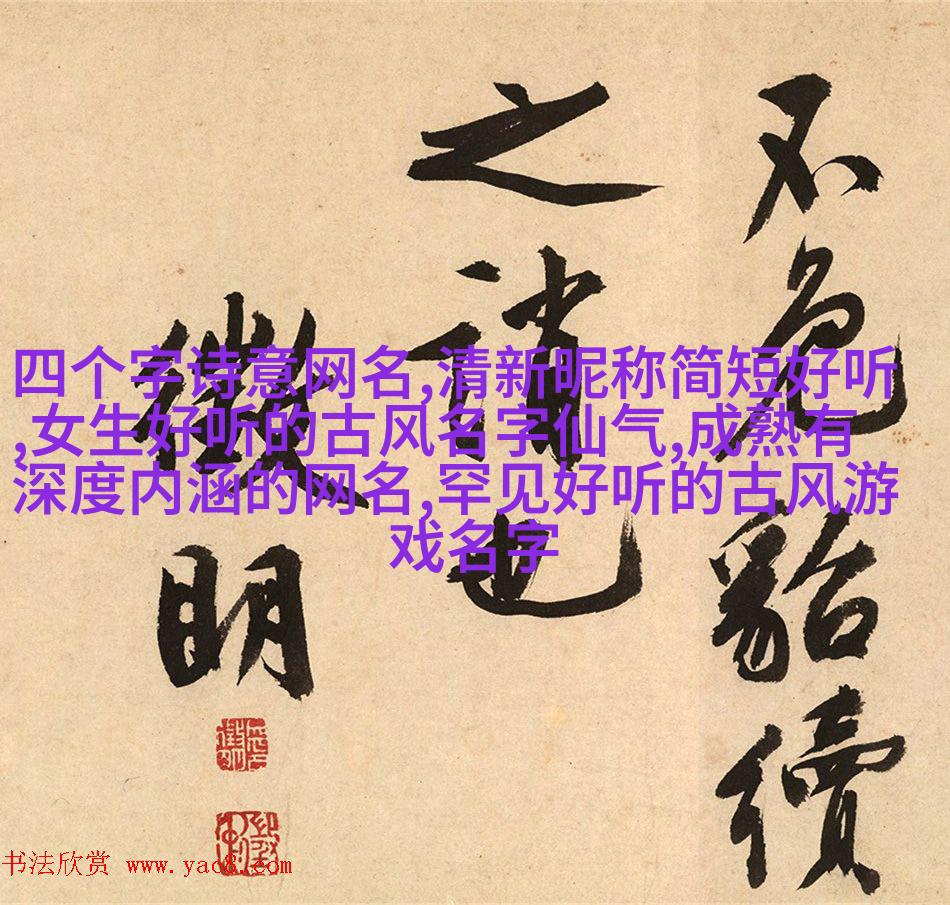 不免貂續
之誚也
徵明
四个字诗意网名,清新昵称简短好听
,女生好听的古风名字仙气,成熟有
深度内涵的网名,罕见好听的古风游
戏名字
书法欣赏 www.yac8.com